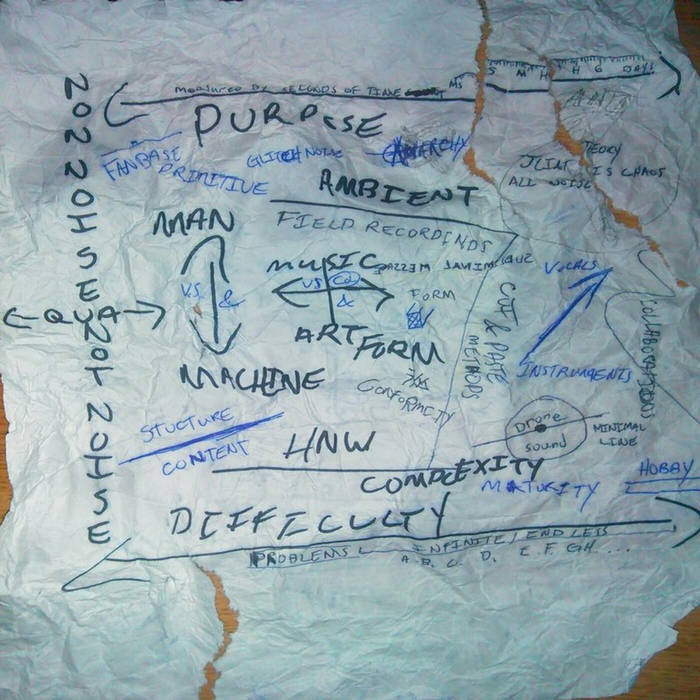 MEASURED BY SECONDS OF TIME
MS S M H H 6 DAYS
PURPOSE
FANBASE
PRIMITIVE
GLITCH NOISE
ANARCHY
TEORY
JLIAT IS CHAOS
ALL NOISE
AMBIENT
FIELD RECORDINGS
MAN
VS &
MACHINE
MUSIC
VS &
ART FORM
SUBLIMINAL MESSAGE
FORM
CONFORMITY
CUT & PASTE
METHODS
VOCALS
INSTRUMENTS
COLLABORATIONS
NON NOISE NOT NOISE
QUA
STUCTURE
CONTENT
HNW
Drone
sound
MINIMAL
LINE
COMPLEXITY
MATURITY
HOBBY
DIFFICULTY
PROBLEMS INFINITE/ENDLESS
A. B. C. D. E. F. G H ...